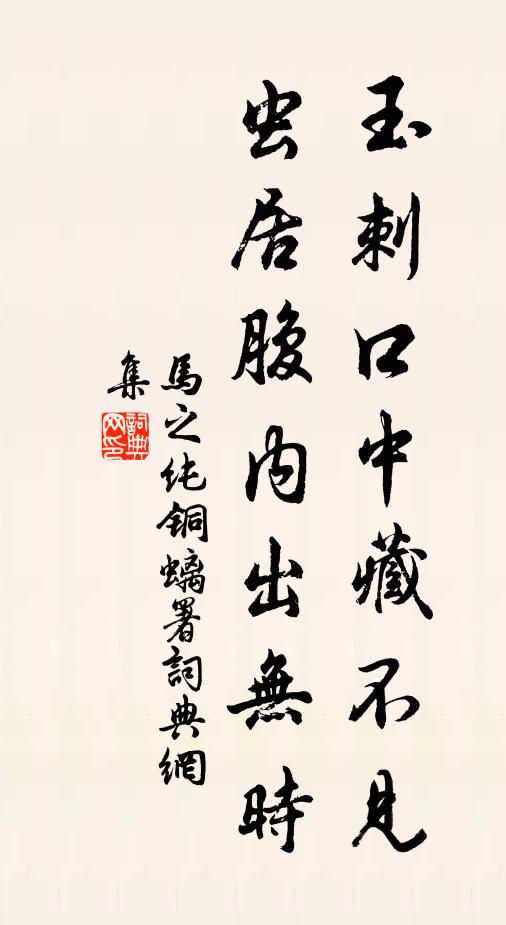 玉刺口中藏不見
虫居腹内出無時
馬之純銅螭署詞典網
集
詞典網印